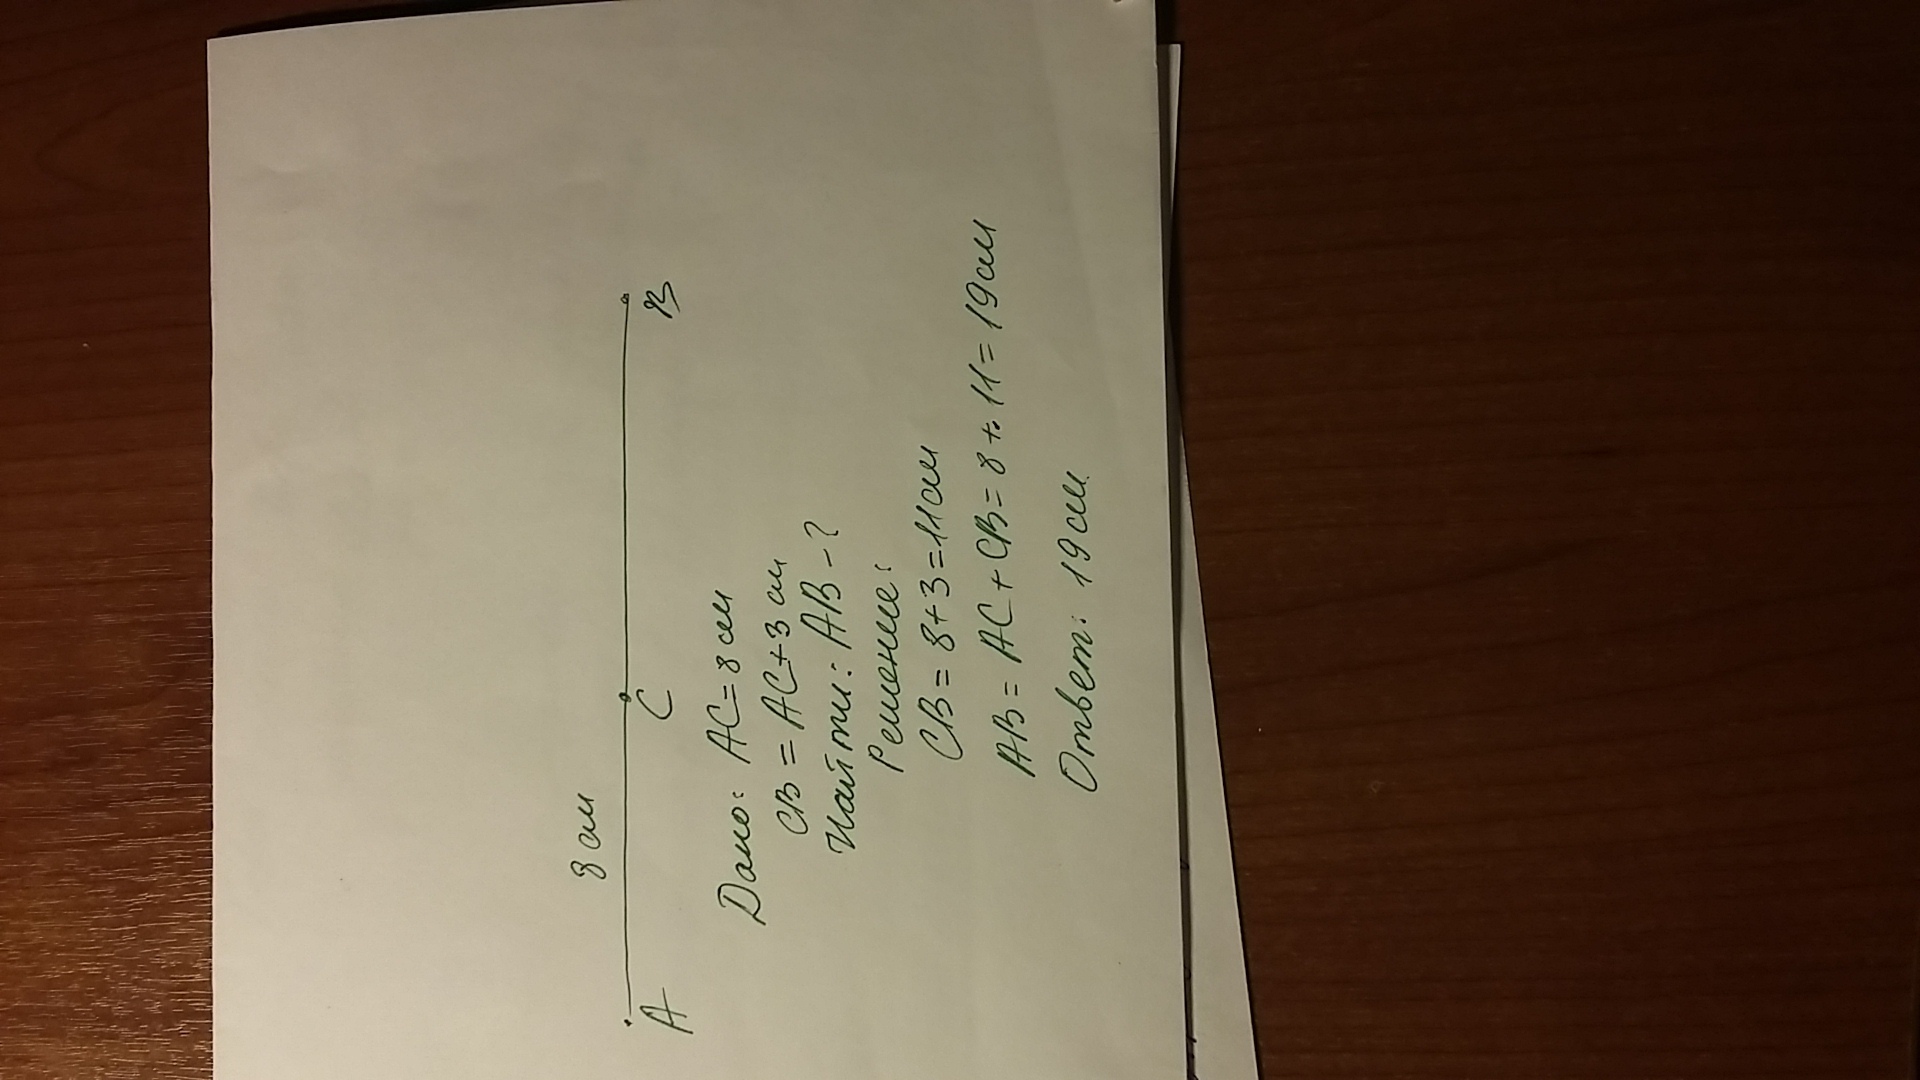 8 см
A C B
Дано: AC = 8 см
CB = AC + 3 см
Найти: AB - ?
Решение:
CB = 8 + 3 = 11 см
AB = AC + CB = 8 + 11 = 19 см
Ответ: 19 см.